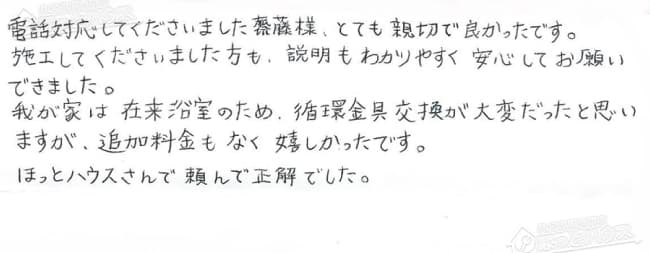 電話対応してくださいました齋藤様、とても親切で良かったです。
施工してくださいました方も、説明もわかりやすく安心してお願い
できました。
我が家は在来浴室のため、循環金具交換が大変だったと思い
ますが、追加料金もなく嬉しかったです。
ほっとハウスさんで頼んで正解でした。